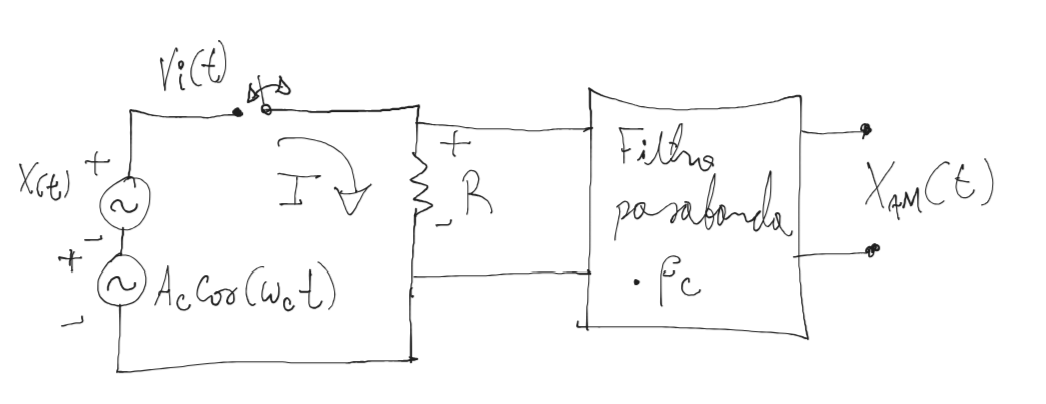 Vi(t)
+
X(t)
-
+
Ac Cos(ωct)
-
I
+
R
-
Filtro
pasabanda
. fc
XAM(t)